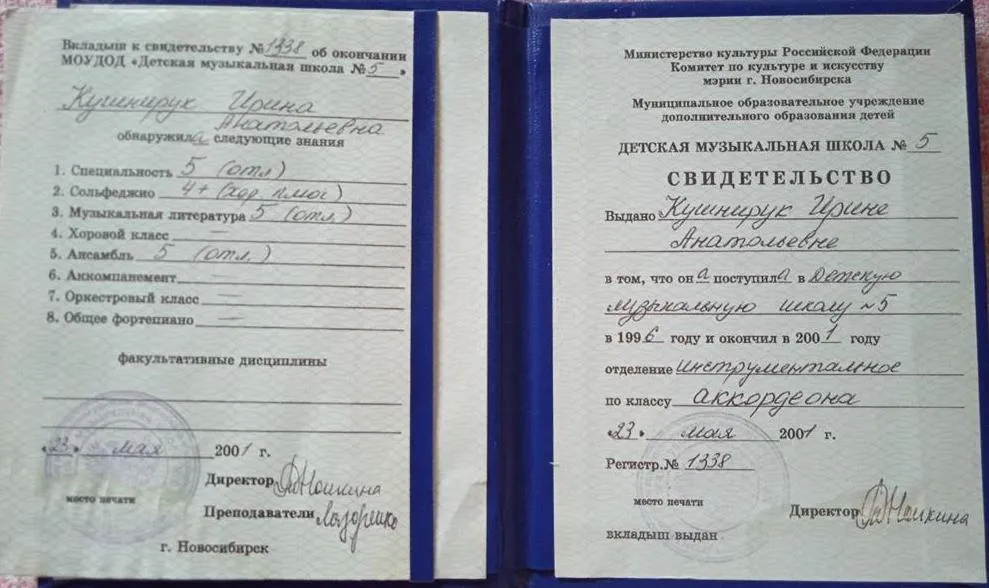 Вкладыш к свидетельству № 1338 об окончании
МОУДОД «Детская музыкальная школа № 5 »
Кушнирук Ирина
Анатольевна
обнаружила следующие знания
1. Специальность 5 (отл)
2. Сольфеджио 4+ (хор. плюс)
3. Музыкальная литература 5 (отл.)
4. Хоровой класс —
5. Ансамбль 5 (отл.)
6. Аккомпанемент —
7. Оркестровый класс —
8. Общее фортепиано —
факультативные дисциплины
«23» мая 2001 г.
Директор
место печати
Преподаватели
г. Новосибирск
Министерство культуры Российской Федерации
Комитет по культуре и искусству
мэрии г. Новосибирска
Муниципальное образовательное учреждение
дополнительного образования детей
ДЕТСКАЯ МУЗЫКАЛЬНАЯ ШКОЛА № 5
СВИДЕТЕЛЬСТВО
Выдано Кушнирук Ирине
Анатольевне
в том, что она поступила в Детскую
музыкальную школу №5
в 1996 году и окончил в 2001 году
отделение инструментальное
по классу аккордеона
«23» мая 2001 г.
Регистр.№ 1338
место печати
Директор
вкладыш выдан